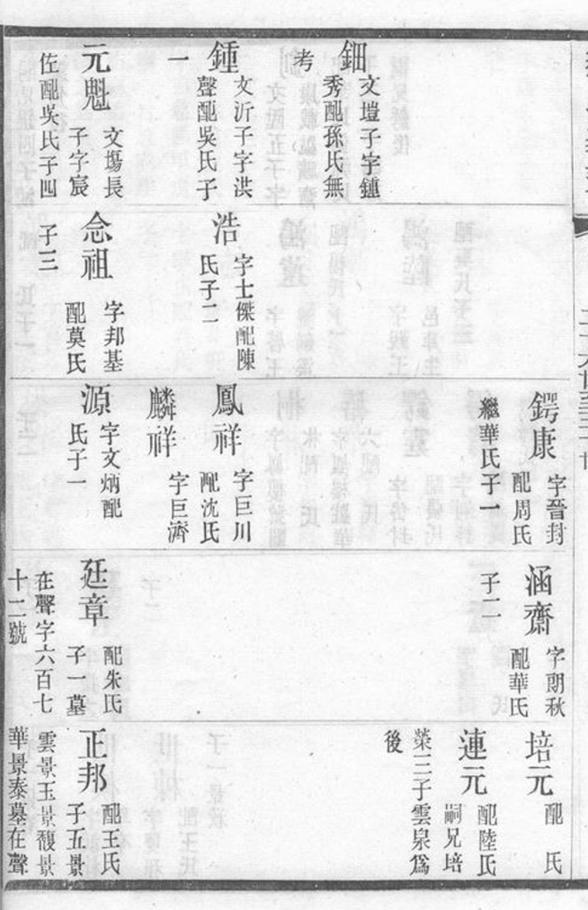 鈿
文塏子字鍾
秀配孫氏無
考
鍾
文沂子字洪
聲配吳氏子
一
元魁
文塲長
子字宸
佐配吳氏子四
浩
字士傑配陳
氏子二
念祖
字邦基
配莫氏
子三
鍔康
字晉封
配周氏
繼華氏子一
鳳祥
字巨川
配沈氏
麟祥
字巨濟
源
字文炳配
氏子一
涵齋
字朗秋
配華氏
子二
廷章
配朱氏
子一墓
在聲字六百七
十二號
培元
配 氏
連元
配陸氏
嗣兄培
榮三子雲泉爲
後
正邦
配王氏
子五景
雲景玉景馥景
華景泰墓在聲